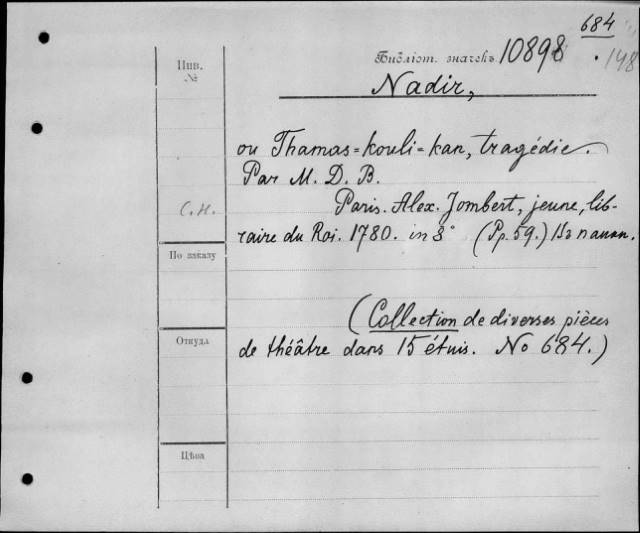 684
Инв. №
Библіот. значекъ 10898 . 148
Nadir,
ou Thamas=kouli=kan, tragédie.
Par M. D. B.
С.Н.
Paris. Alex. Jombert, jeune, lib-
raire du Roi. 1780. in 8° (Pp. 59.) Въ папк.
По заказу
(Collection de diverses pièces
Откуда
de théâtre dans 15 étuis. No 684.)
Цѣна